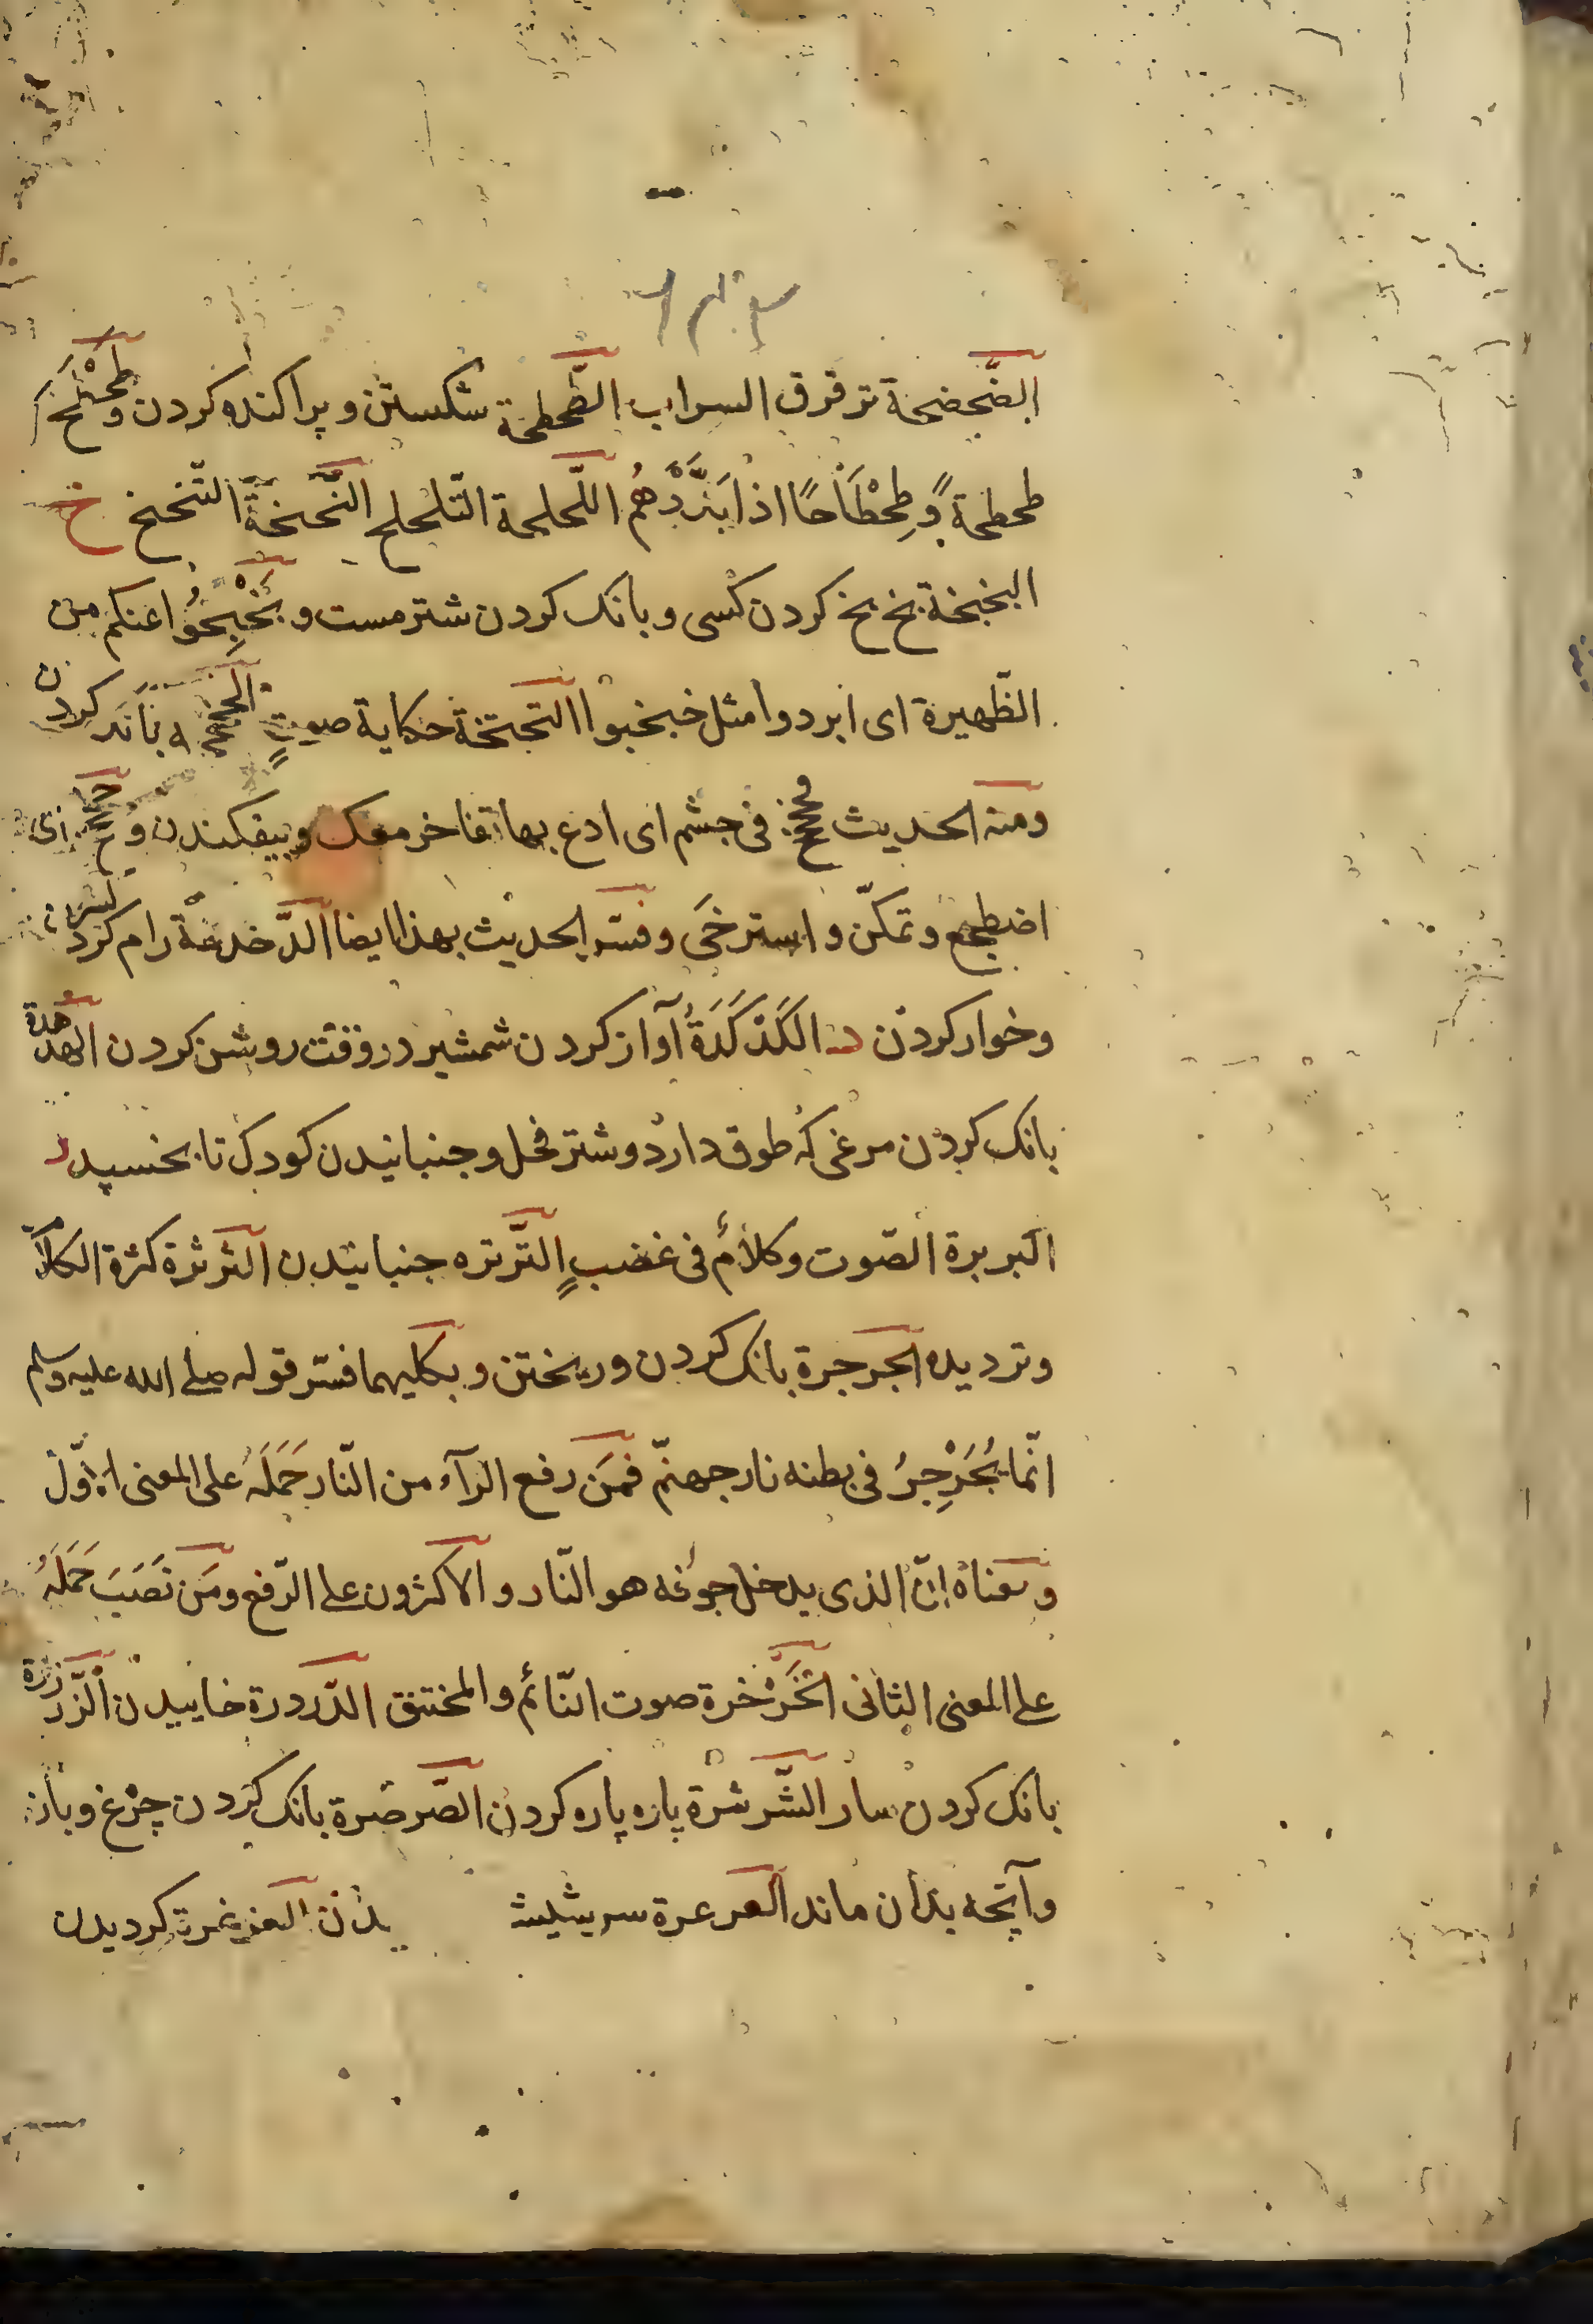 الضَّحضحة ترقرق السراب الطَّحطحة شكستن و پراكنده كردن و طَحْطَحَ
طحطحةً وَطِحْطَاحًا اذا بَدَّدَهُم اللَّحلحة التّلحلح النَّخنخة التّنخنخ خ
البخبخة بخ بخ كردن كسی و بانك كردن شتر مست و بَخْبِخُوا عنكم من
الظّهيرة ای ابردوا مثل خبخبوا التّختخة حكاية صوتٍ
ومنه الحديث فی جشم ای ادع بها تفاخر معك و بيفكندن و ای
اضطجع وتمكّن واسترخَی وفسّر الحديث بهذا ايضا الدّخدخة رام كردن
وخوار كردن د الكَدْكَدَةُ آواز كردن شمشير در وقت روشن كردن الهدهدة
بانك كردن مرغی كه طوق دارد و شتر فحل و جنبانيدن كودك تا بخسپد ر
البربرة الصّوت وكلامٌ فی غضبٍ التّرتره جنبانيدن الثرثرة كثرة الكلام
وترديده الجرجرة بانك كردن و ريختن و بكليهما فسّر قوله صلے الله عليه وسلم
انّما يُجَرْجِرُ فی بطنه نار جهنّم فمَن رفع الرّآء من النّار حَمَلَهُ علی المعنی الاوّل
ومعناه انّ الذی يدخل جوفه هو النّار والاكثرون علے الرّفع ومَن نَصَبَ حَمَلَهُ
علے المعنی الثانی الخَرْخرة صوت النّائم والمختنق الدّردرة خاييدن الزّرزرة
بانك كردن سار الشّرشرة پاره پاره كردن الصّرصرة بانك كردن چرغ و باز
وآنچه بدان ماند العرعرة سر الغرغرة كرديدن